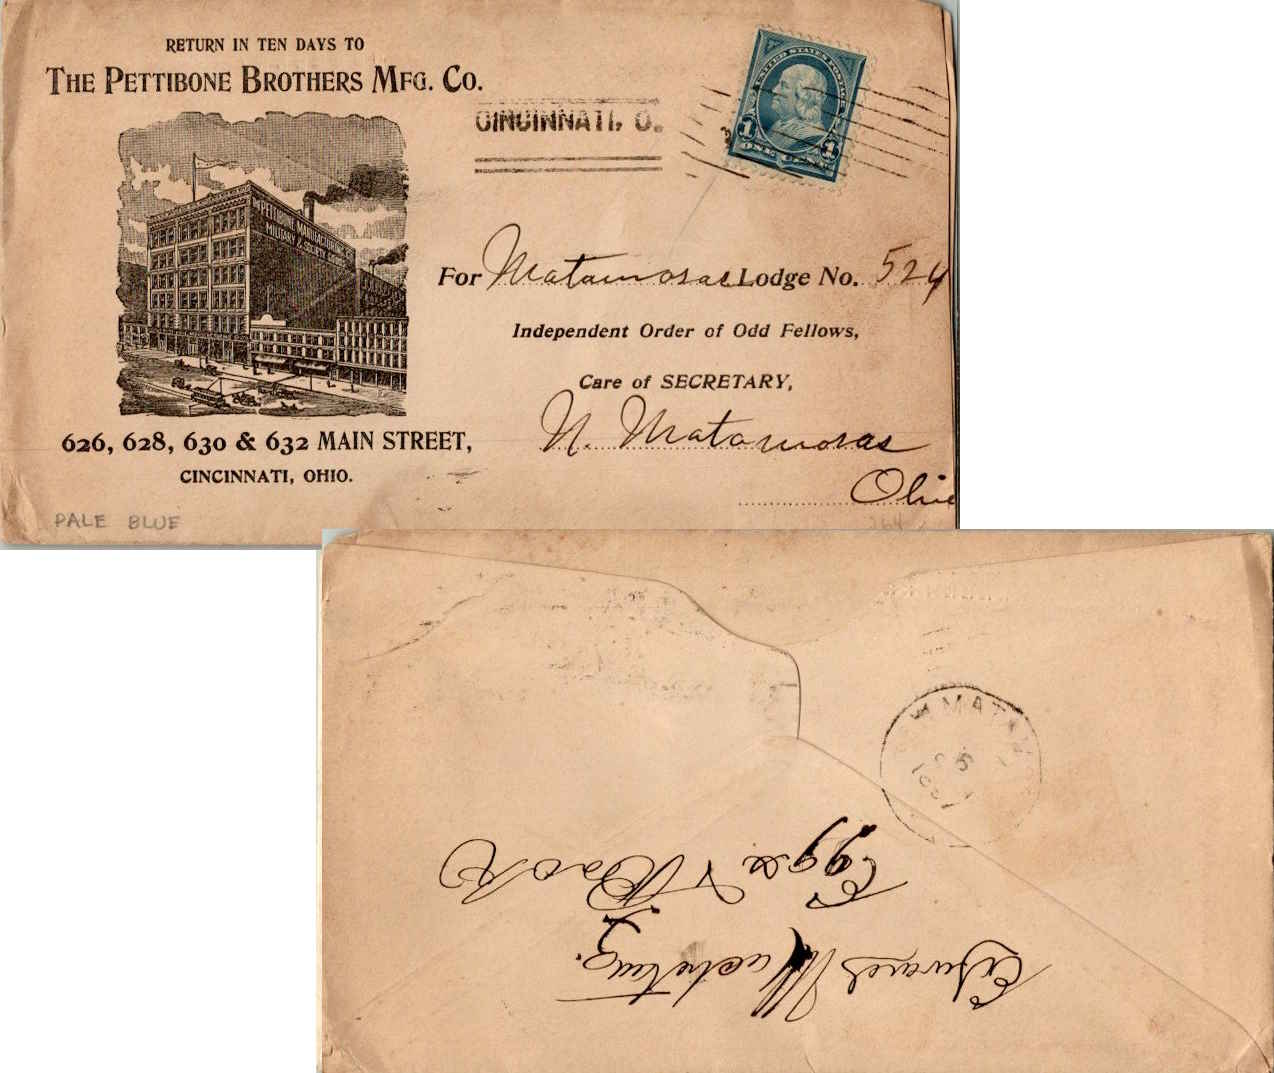 RETURN IN TEN DAYS TO
THE PETTIBONE BROTHERS MFG. CO.
CINCINNATI, O.
UNITED STATES POSTAGE
1 1
ONE CENT
PETTIBONE MANUFACTURING
MILITARY & SOCIETY GOODS
For Matamoras Lodge No. 524
Independent Order of Odd Fellows,
Care of SECRETARY,
N. Matamoras
Ohio
626, 628, 630 & 632 MAIN STREET,
CINCINNATI, OHIO.
PALE BLUE
264
W MATAM
1897
Edward